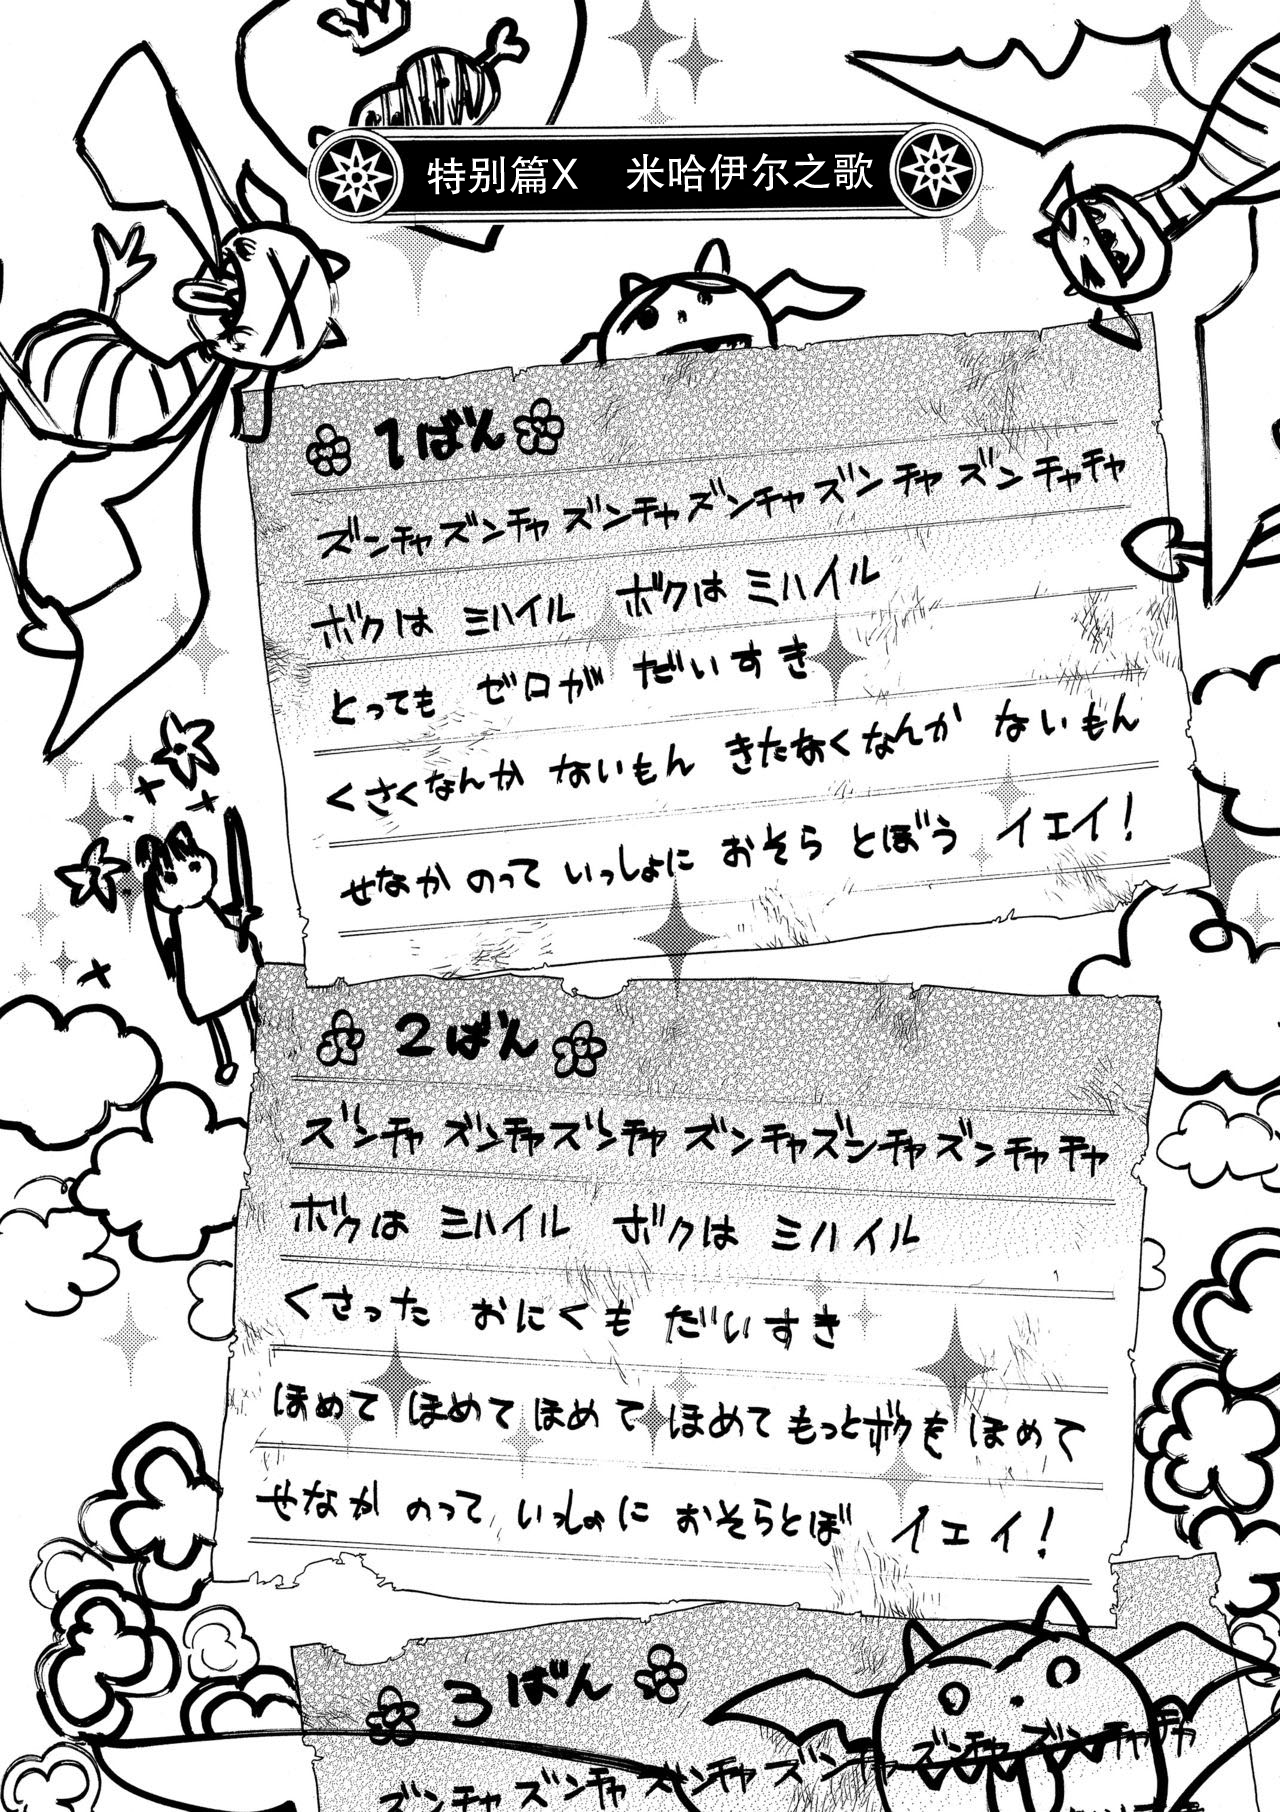 特别篇X 米哈伊尔之歌
1ばん
ズンチャズンチャズンチャズンチャズンチャズンチャチャ
ボクは ミハイル ボクは ミハイル
とっても ゼロが だいすき
くさくなんか ないもん きたなくなんか ないもん
せなか のって いっしょに おそら とぼう イエイ!
2ばん
ズンチャ ズンチャズンチャ ズンチャズンチャズンチャチャ
ボクは ミハイル ボクは ミハイル
くさった おにくも だいすき
ほめて ほめて ほめて ほめて もっとボクを ほめて
せなか のって いっしょに おそらとぼ イェイ!
3ばん
ズンチャズンチャズンチャズンチャズンチャズンチャチャ